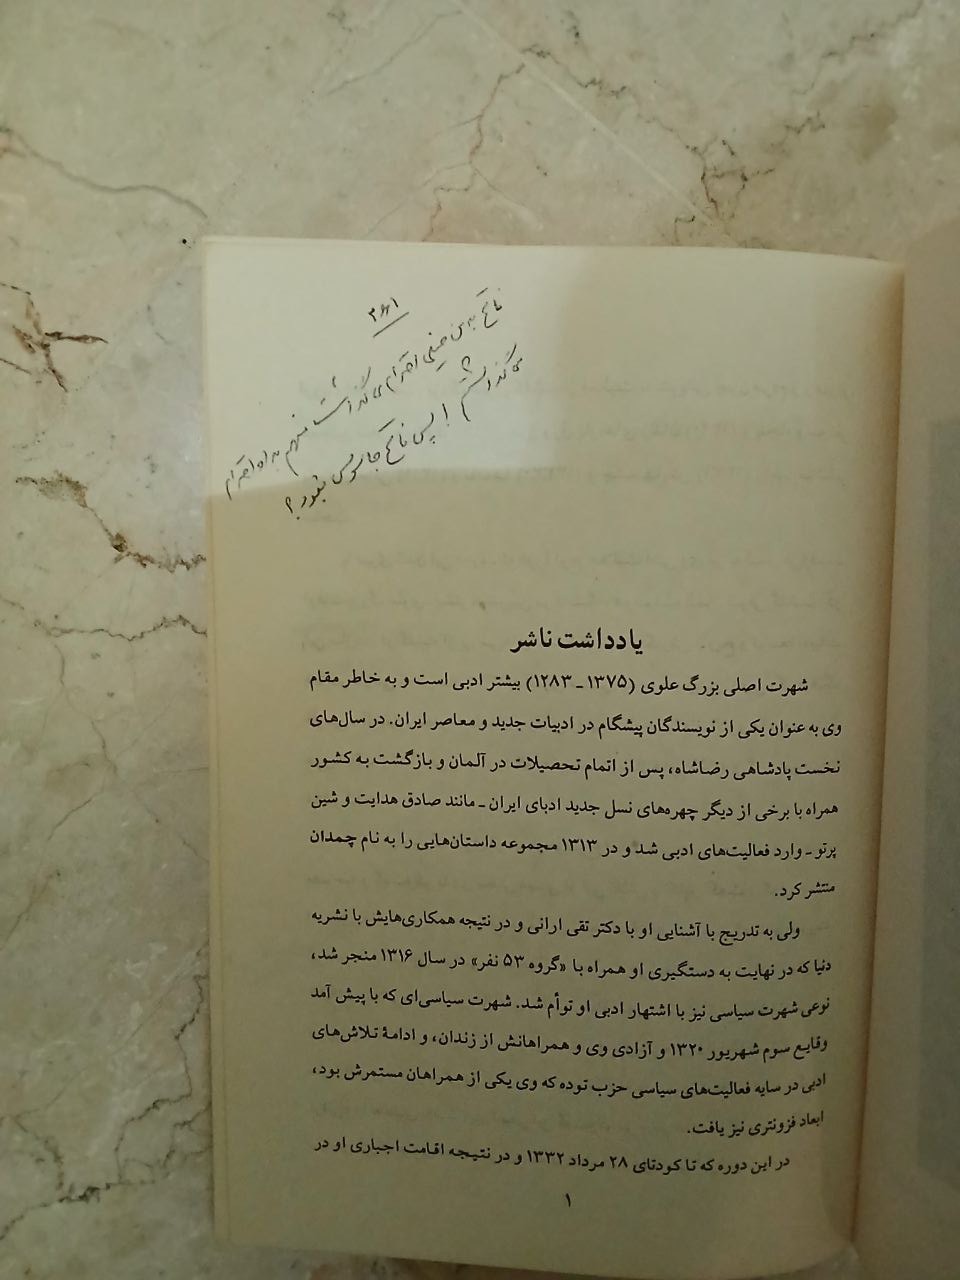 ۳۶۱
فاتح به من خیلی احترام می‌گذاشت منهم به او احترام
می‌گذاشتم! پس فاتح جاسوس نبود؟
یادداشت ناشر
شهرت اصلی بزرگ علوی (۱۳۷۵ ـ ۱۲۸۳) بیشتر ادبی است و به خاطر مقام
وی به عنوان یکی از نویسندگان پیشگام در ادبیات جدید و معاصر ایران. در سال‌های
نخست پادشاهی رضاشاه، پس از اتمام تحصیلات در آلمان و بازگشت به کشور
همراه با برخی از دیگر چهره‌های نسل جدید ادبای ایران ـ مانند صادق هدایت و شین
پرتو ـ وارد فعالیت‌های ادبی شد و در ۱۳۱۳ مجموعه داستان‌هایی را به نام چمدان
منتشر کرد.
ولی به تدریج با آشنایی او با دکتر تقی ارانی و در نتیجه همکاری‌هایش با نشریه
دنیا که در نهایت به دستگیری او همراه با «گروه ۵۳ نفر» در سال ۱۳۱۶ منجر شد،
نوعی شهرت سیاسی نیز با اشتهار ادبی او توأم شد. شهرت سیاسی‌ای که با پیش آمد
وقایع سوم شهریور ۱۳۲۰ و آزادی وی و همراهانش از زندان، و ادامهٔ تلاش‌های
ادبی در سایه فعالیت‌های سیاسی حزب توده که وی یکی از همراهان مستمرش بود،
ابعاد فزونتری نیز یافت.
در این دوره که تا کودتای ۲۸ مرداد ۱۳۳۲ و در نتیجه اقامت اجباری او در
۱